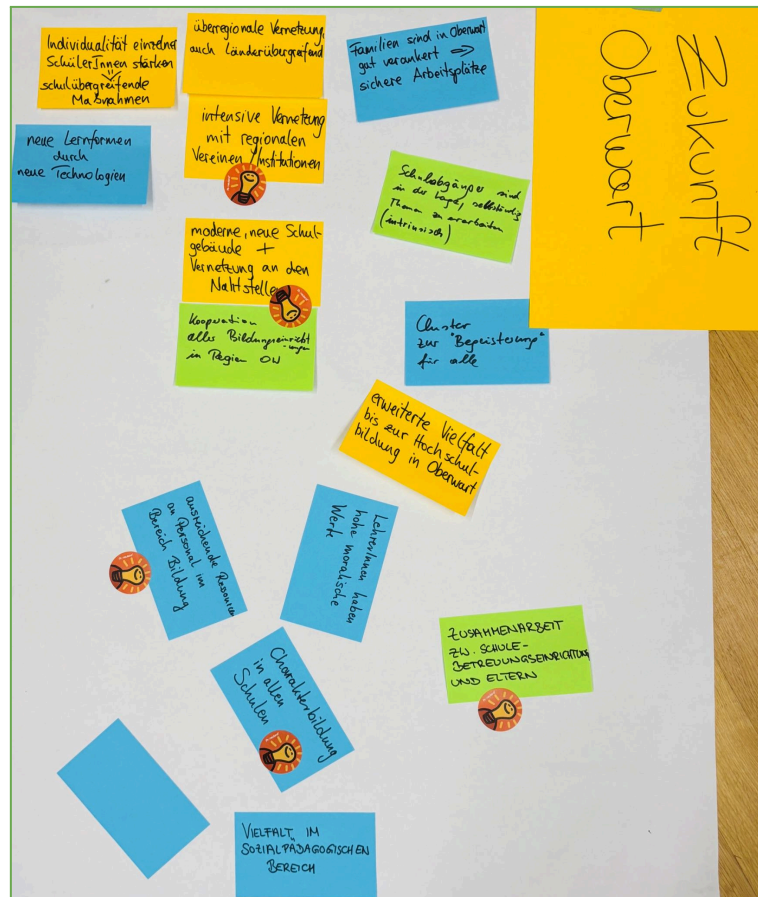 Zukunft
Oberwart
Individualität einzelner
SchülerInnen stärken
schulübergreifende
Maßnahmen
überregionale Vernetzung,
auch Länderübergreifend
Familien sind in Oberwart
gut verankert ⇒
sichere Arbeitsplätze
neue Lernformen
durch
neue Technologien
intensive Vernetzung
mit regionalen
Vereinen / Institutionen
Schulabgänger sind
in der Lage, selbständig
Themen zu erarbeiten
(intrinsisch)
moderne, neue Schul-
gebäude +
Vernetzung an den
Nahtstellen
Kooperation
aller Bildungseinricht
-ungen
in Region OW
Cluster
zur "Begeisterung"
für alle
erweiterte Vielfalt
bis zur Hochschul-
bildung in Oberwart
ausreichende Resourcen
an Personal im
Bereich Bildung
LehrerInnen haben
hohe moralische
Werte
ZUSAMMENARBEIT
ZW. SCHULE-
BETREUUNGSEINRICHTUNG
UND ELTERN
Charakterbildung
in allen
Schulen
VIELFALT IM
SOZIALPÄDAGOGISCHEN
BEREICH